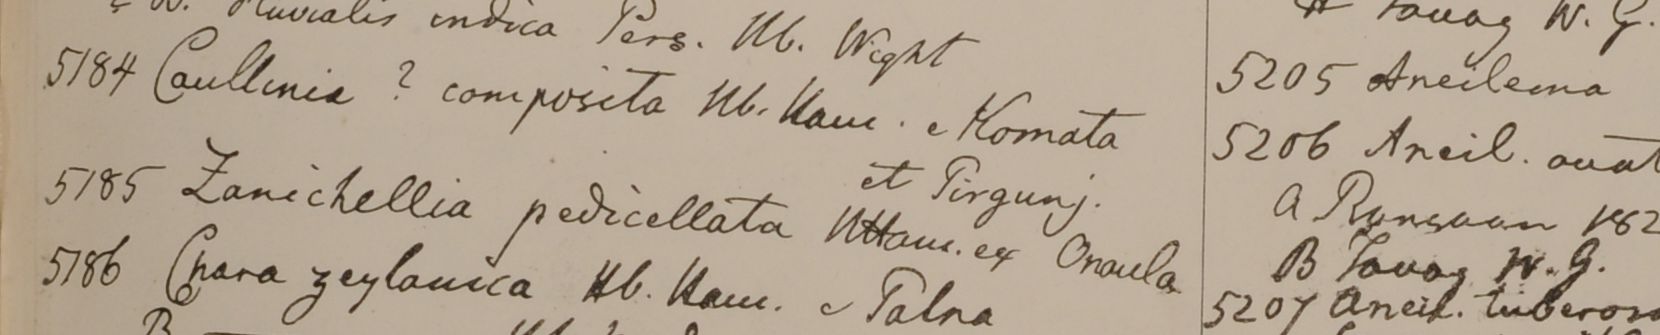 Fluvialis indica Pers. Hb. Wight
5184 Caullinia ? composita Hb. Ham. e Komata
et Pirgunj.
5185 Zanichellia pedicellata HHam. ex Onaula
5186 Chara zeylanica Hb. Ham. e Patna
B
Tavoy W. G.
5205 Aneilema
5206 Aneil. ovat
a Rangoon 182
B Tavoy W. G.
5207 Aneil. tuberos